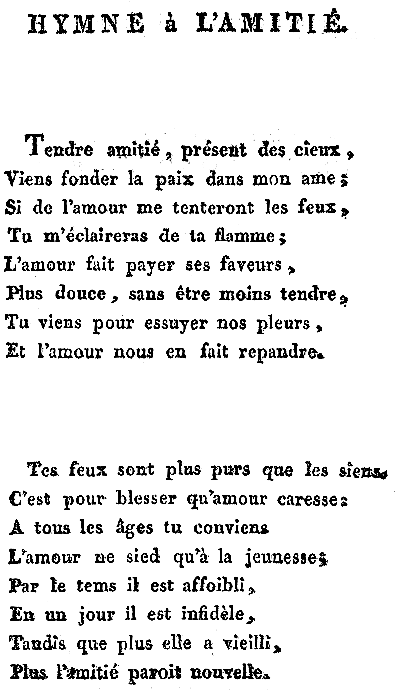 HYMNE à L'AMITIÉ.
Tendre amitié, présent des cieux,
Viens fonder la paix dans mon ame;
Si de l'amour me tenteront les feux,
Tu m'éclaireras de ta flamme;
L'amour fait payer ses faveurs,
Plus douce, sans être moins tendre,
Tu viens pour essuyer nos pleurs,
Et l'amour nous en fait repandre.
Tes feux sont plus purs que les siens.
C'est pour blesser qu'amour caresse:
A tous les âges tu conviens
L'amour ne sied qu'à la jeunesse;
Par le tems il est affoibli,
En un jour il est infidèle,
Tandis que plus elle a vieilli,
Plus l'amitié paroit nouvelle.